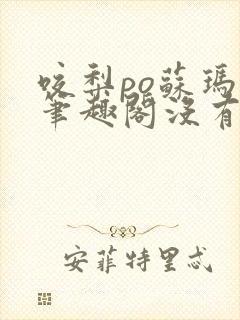 咬梨po蘇瑪
筆趣閣沒有
安菲特里忒